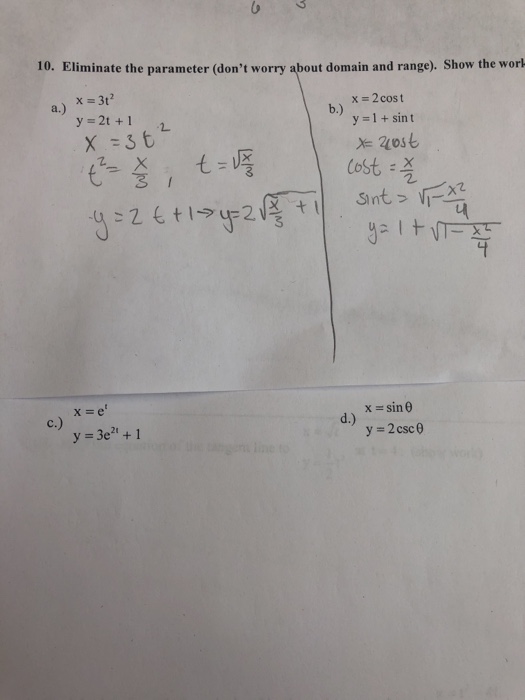 10. Eliminate the parameter (don't worry about domain and range). Show the work
a.) x = 3t²
y = 2t + 1
x = 3t²
t² = x/3, t = √(x/3)
y = 2t + 1 → y = 2√(x/3 + 1)
b.) x = 2cos t
y = 1 + sin t
x = 2cost
cost = x/2
sint = √(1 - x²/4)
y = 1 + √(1 - x²/4)
c.) x = eᵗ
y = 3e²ᵗ + 1
d.) x = sin θ
y = 2 csc θ